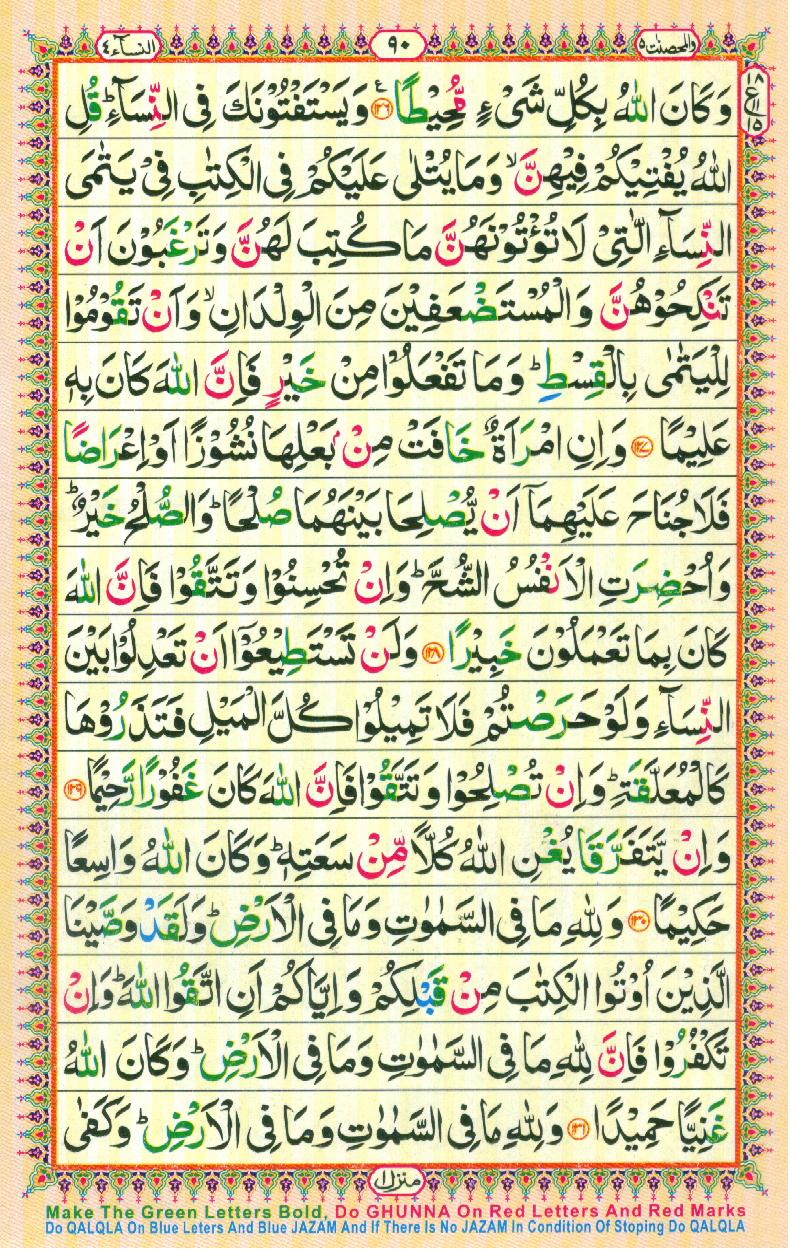 والمحصنت ٥ ٩٠ النساۤء ٤
١٨ ع ١١ ١٥
وَكَانَ اللهُ بِكُلِّ شَیْءٍ مُّحِیْطًا ﴿۱۲۶﴾ وَیَسْتَفْتُوْنَكَ فِی النِّسَآءِ ؕ قُلِ
اللهُ یُفْتِیْكُمْ فِیْهِنَّ ۙ وَمَا یُتْلٰی عَلَیْكُمْ فِی الْكِتٰبِ فِیْ یَتٰمَی
النِّسَآءِ الّٰتِیْ لَا تُؤْتُوْنَهُنَّ مَا كُتِبَ لَهُنَّ وَتَرْغَبُوْنَ اَنْ
تَنْكِحُوْهُنَّ وَالْمُسْتَضْعَفِیْنَ مِنَ الْوِلْدَانِ ۙ وَاَنْ تَقُوْمُوْا
لِلْیَتٰمٰی بِالْقِسْطِ ؕ وَمَا تَفْعَلُوْا مِنْ خَیْرٍ فَاِنَّ اللهَ كَانَ بِهٖ
عَلِیْمًا ﴿۱۲۷﴾ وَاِنِ امْرَاَةٌ خَافَتْ مِنْۢ بَعْلِهَا نُشُوْزًا اَوْ اِعْرَاضًا
فَلَا جُنَاحَ عَلَیْهِمَاۤ اَنْ یُّصْلِحَا بَیْنَهُمَا صُلْحًا ؕ وَالصُّلْحُ خَیْرٌ ؕ
وَاُحْضِرَتِ الْاَنْفُسُ الشُّحَّ ؕ وَاِنْ تُحْسِنُوْا وَتَتَّقُوْا فَاِنَّ اللهَ
كَانَ بِمَا تَعْمَلُوْنَ خَبِیْرًا ﴿۱۲۸﴾ وَلَنْ تَسْتَطِیْعُوْۤا اَنْ تَعْدِلُوْا بَیْنَ
النِّسَآءِ وَلَوْ حَرَصْتُمْ فَلَا تَمِیْلُوْا كُلَّ الْمَیْلِ فَتَذَرُوْهَا
كَالْمُعَلَّقَةِ ؕ وَاِنْ تُصْلِحُوْا وَتَتَّقُوْا فَاِنَّ اللهَ كَانَ غَفُوْرًا رَّحِیْمًا ﴿۱۲۹﴾
وَاِنْ یَّتَفَرَّقَا یُغْنِ اللهُ كُلًّا مِّنْ سَعَتِهٖ ؕ وَكَانَ اللهُ وَاسِعًا
حَكِیْمًا ﴿۱۳۰﴾ وَلِلهِ مَا فِی السَّمٰوٰتِ وَمَا فِی الْاَرْضِ ؕ وَلَقَدْ وَصَّیْنَا
الَّذِیْنَ اُوْتُوا الْكِتٰبَ مِنْ قَبْلِكُمْ وَاِیَّاكُمْ اَنِ اتَّقُوا اللهَ ؕ وَاِنْ
تَكْفُرُوْا فَاِنَّ لِلهِ مَا فِی السَّمٰوٰتِ وَمَا فِی الْاَرْضِ ؕ وَكَانَ اللهُ
غَنِیًّا حَمِیْدًا ﴿۱۳۱﴾ وَلِلهِ مَا فِی السَّمٰوٰتِ وَمَا فِی الْاَرْضِ ؕ وَكَفٰی
منزل ١
Make The Green Letters Bold, Do GHUNNA On Red Letters And Red Marks
Do QALQLA On Blue Leters And Blue JAZAM And If There Is No JAZAM In Condition Of Stoping Do QALQLA